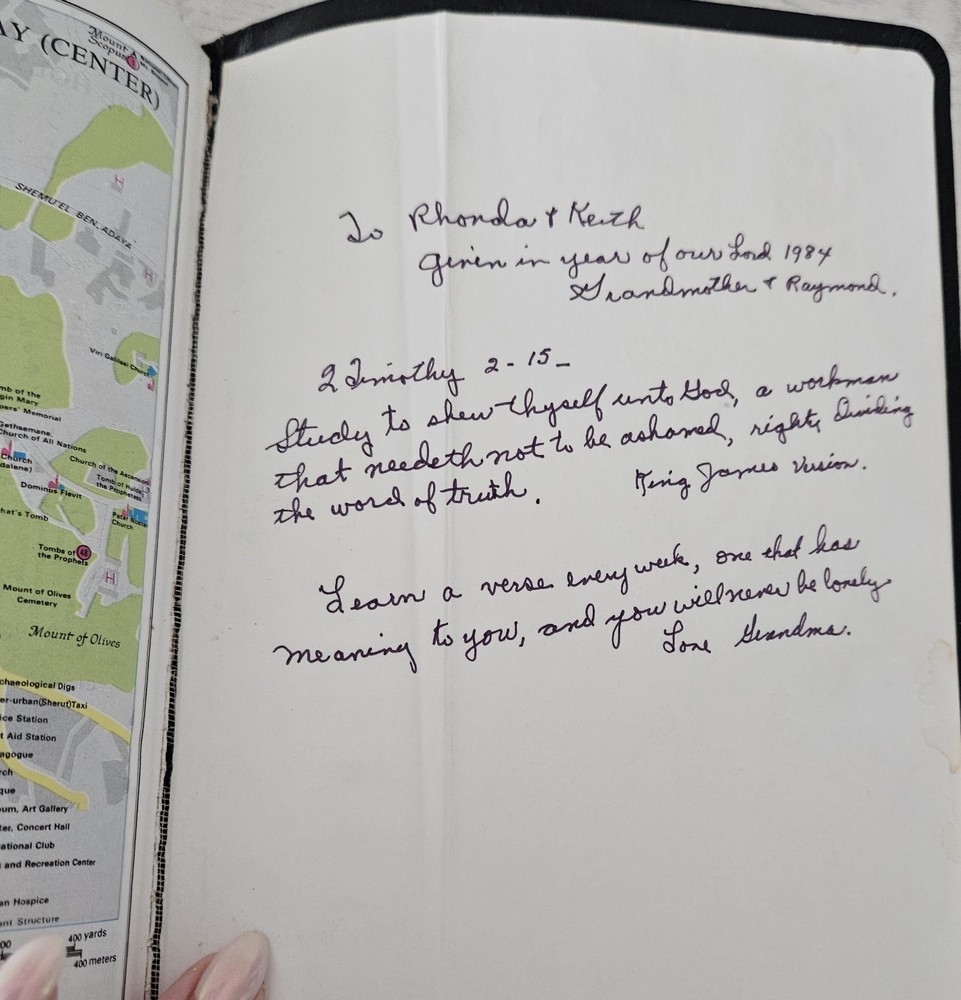 AY (CENTER)
Mount
Scopus
SHEMU'EL BEN-ADAYA
H
H
Viri Galilaei Church
mb of the
gin Mary
Memorial
Gethsemane,
Church of All Nations
Church
dalene)
Church of the Ascension
Tomb of Hulda
the Prophetess
Dominus Flevit
Pater Noster
Church
hat's Tomb
Tombs of
the Prophets
48
H
Mount of Olives
Cemetery
Mount of Olives
chaeological Digs
er-urban(Sherut)Taxi
ice Station
t Aid Station
agogue
rch
que
eum, Art Gallery
ter, Concert Hall
ational Club
and Recreation Center
an Hospice
ant Structure
00
400 yards
400 meters
To Rhonda & Keith
given in year of our Lord 1984
Grandmother & Raymond.
2 Timothy 2-15-
Study to shew thyself unto God, a workman
that needeth not to be ashamed, right, Dividing
the word of truth. King James Vision.
Learn a verse every week, one that has
meaning to you, and you will never be lonely
Love Grandma.